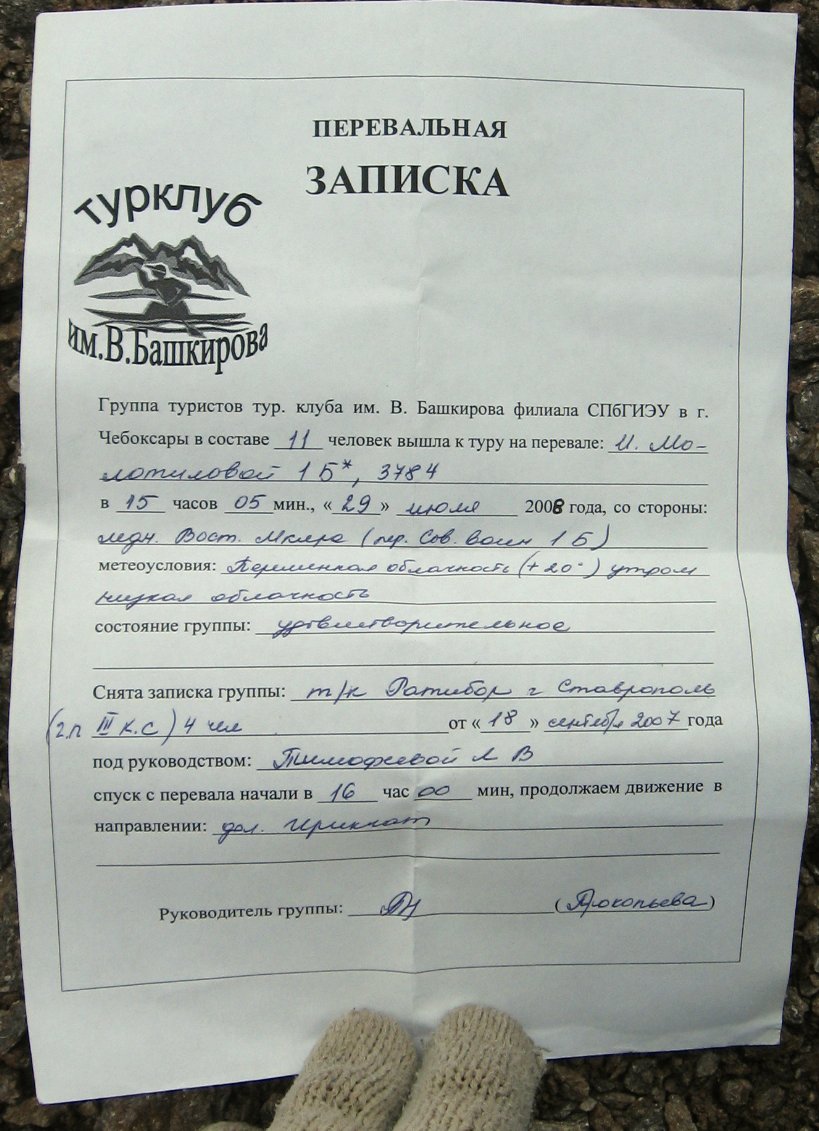 ПЕРЕВАЛЬНАЯ
ЗАПИСКА
турклуб
им.В.Башкирова
Группа туристов тур. клуба им. В. Башкирова филиала СПбГИЭУ в г.
Чебоксары в составе 11 человек вышла к туру на перевале: И. Мо-
лотиловой 1Б*, 3784
в 15 часов 05 мин., « 29 » июля 2008 года, со стороны:
ледн. Вост. Мкяра (пер. Сов. воин 1Б)
метеоусловия: Переменная облачность (+20°) утром
низкая облачность
состояние группы: удтвлетворительное
Снята записка группы: т/к Ратибор г Ставрополь
(г.п III к.с) 4 чел от « 18 » сентября 2007 года
под руководством: Тимофеевой Л В
спуск с перевала начали в 16 час 00 мин, продолжаем движение в
направлении: дол. Ирикчат
Руководитель группы: (Прокопьева)